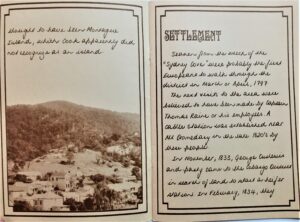 thought to have been Montague
Island, which Cook apparently did
not recognise as an island.
SETTLEMENT
Seamen from the wreck of the
"Sydney Cove" were probably the first
Europeans to walk through the
district in March or April, 1797.
The next visits to the area were
believed to have been made by Captain
Thomas Raine or his employees. A
cattle station was established near
Mt Dromedary in the late 1820's by
these people.
In November, 1833, George Curlewis
and party came to the
in search of land to start a heifer
station. In February, 1834, they